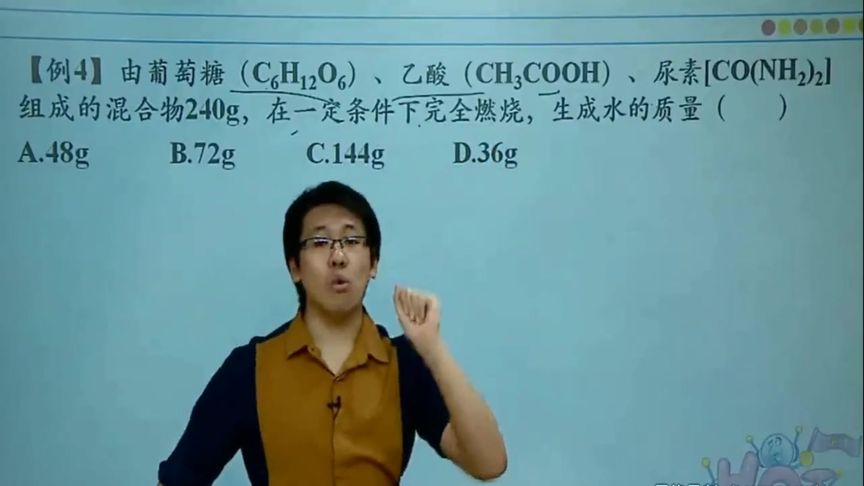 【例4】由葡萄糖（C₆H₁₂O₆）、乙酸（CH₃COOH）、尿素[CO(NH₂)₂]
组成的混合物240g，在一定条件下完全燃烧，生成水的质量（  ）
A.48g B.72g C.144g D.36g